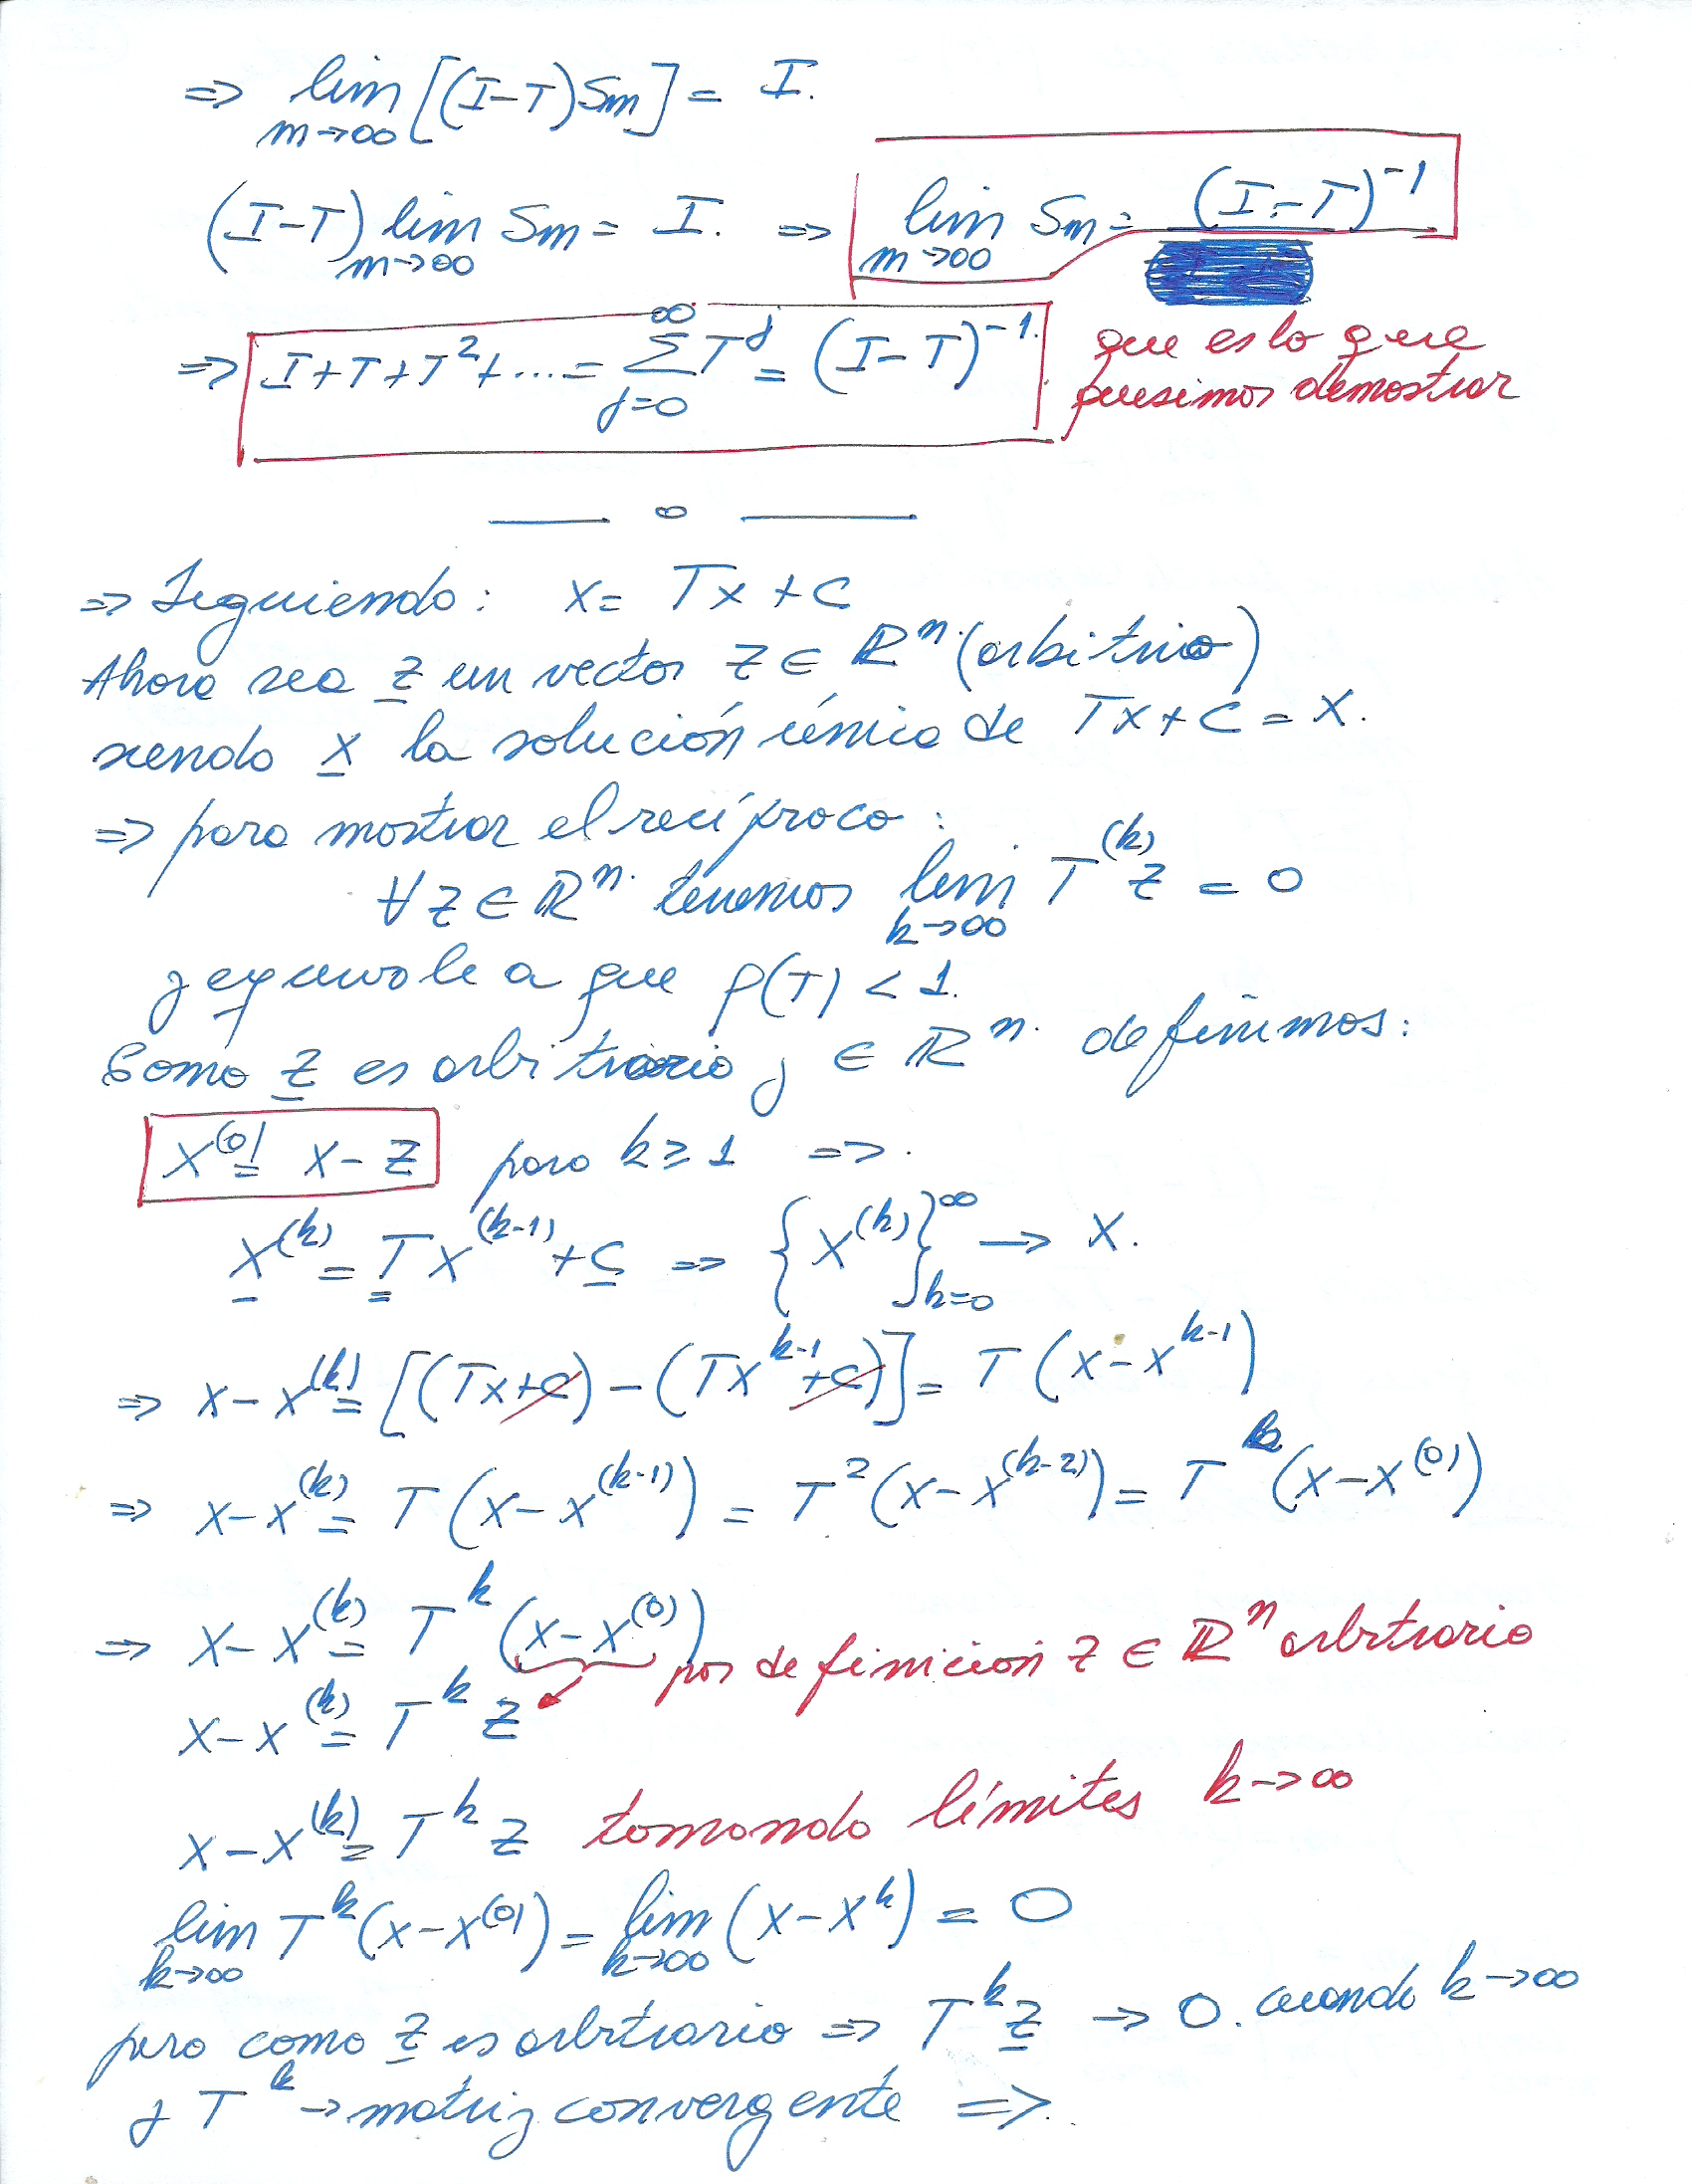 ⇒ lim [(I-T)Sm] = I.
m→∞
(I-T) lim Sm = I. ⇒ lim Sm = (I-T)⁻¹
m→∞ m→∞
⇒ I+T+T²+... = ∑ T^j = (I-T)⁻¹. que es lo que
∞ j=0 quesimos demostrar
—— o ——
⇒ Siguiendo: x = Tx + C
Ahora sea z un vector z ∈ ℝⁿ. (arbitrio)
siendo x la solución única de Tx + C = x.
⇒ para mostrar el recíproco:
∀ z ∈ ℝⁿ. tenemos lim T^(k) z = 0
k→∞
y equivale a que ρ(T) < 1.
Como z es arbitrario y ∈ ℝⁿ. definimos:
x^(0) = x - z para k ≥ 1 ⇒.
x^(k) = Tx^(k-1) + C ⇒ {x^(k)}^∞_k=0 → x.
⇒ x - x^(k) = [(Tx+C) - (Tx^k-1 + C)] = T(x - x^k-1)
⇒ x - x^(k) = T(x - x^(k-1)) = T²(x - x^(k-2)) = T^k (x - x^(0))
⇒ x - x^(k) = T^k (x - x^(0)) por definición z ∈ ℝⁿ arbitrario
x - x^(k) = T^k z
x - x^(k) = T^k z tomando límites k→∞
lim T^k (x - x^(0)) = lim (x - x^k) = 0
k→∞ k→∞
pero como z es arbitrario ⇒ T^k z → 0. cuando k→∞
y T^k → matriz convergente ⇒.